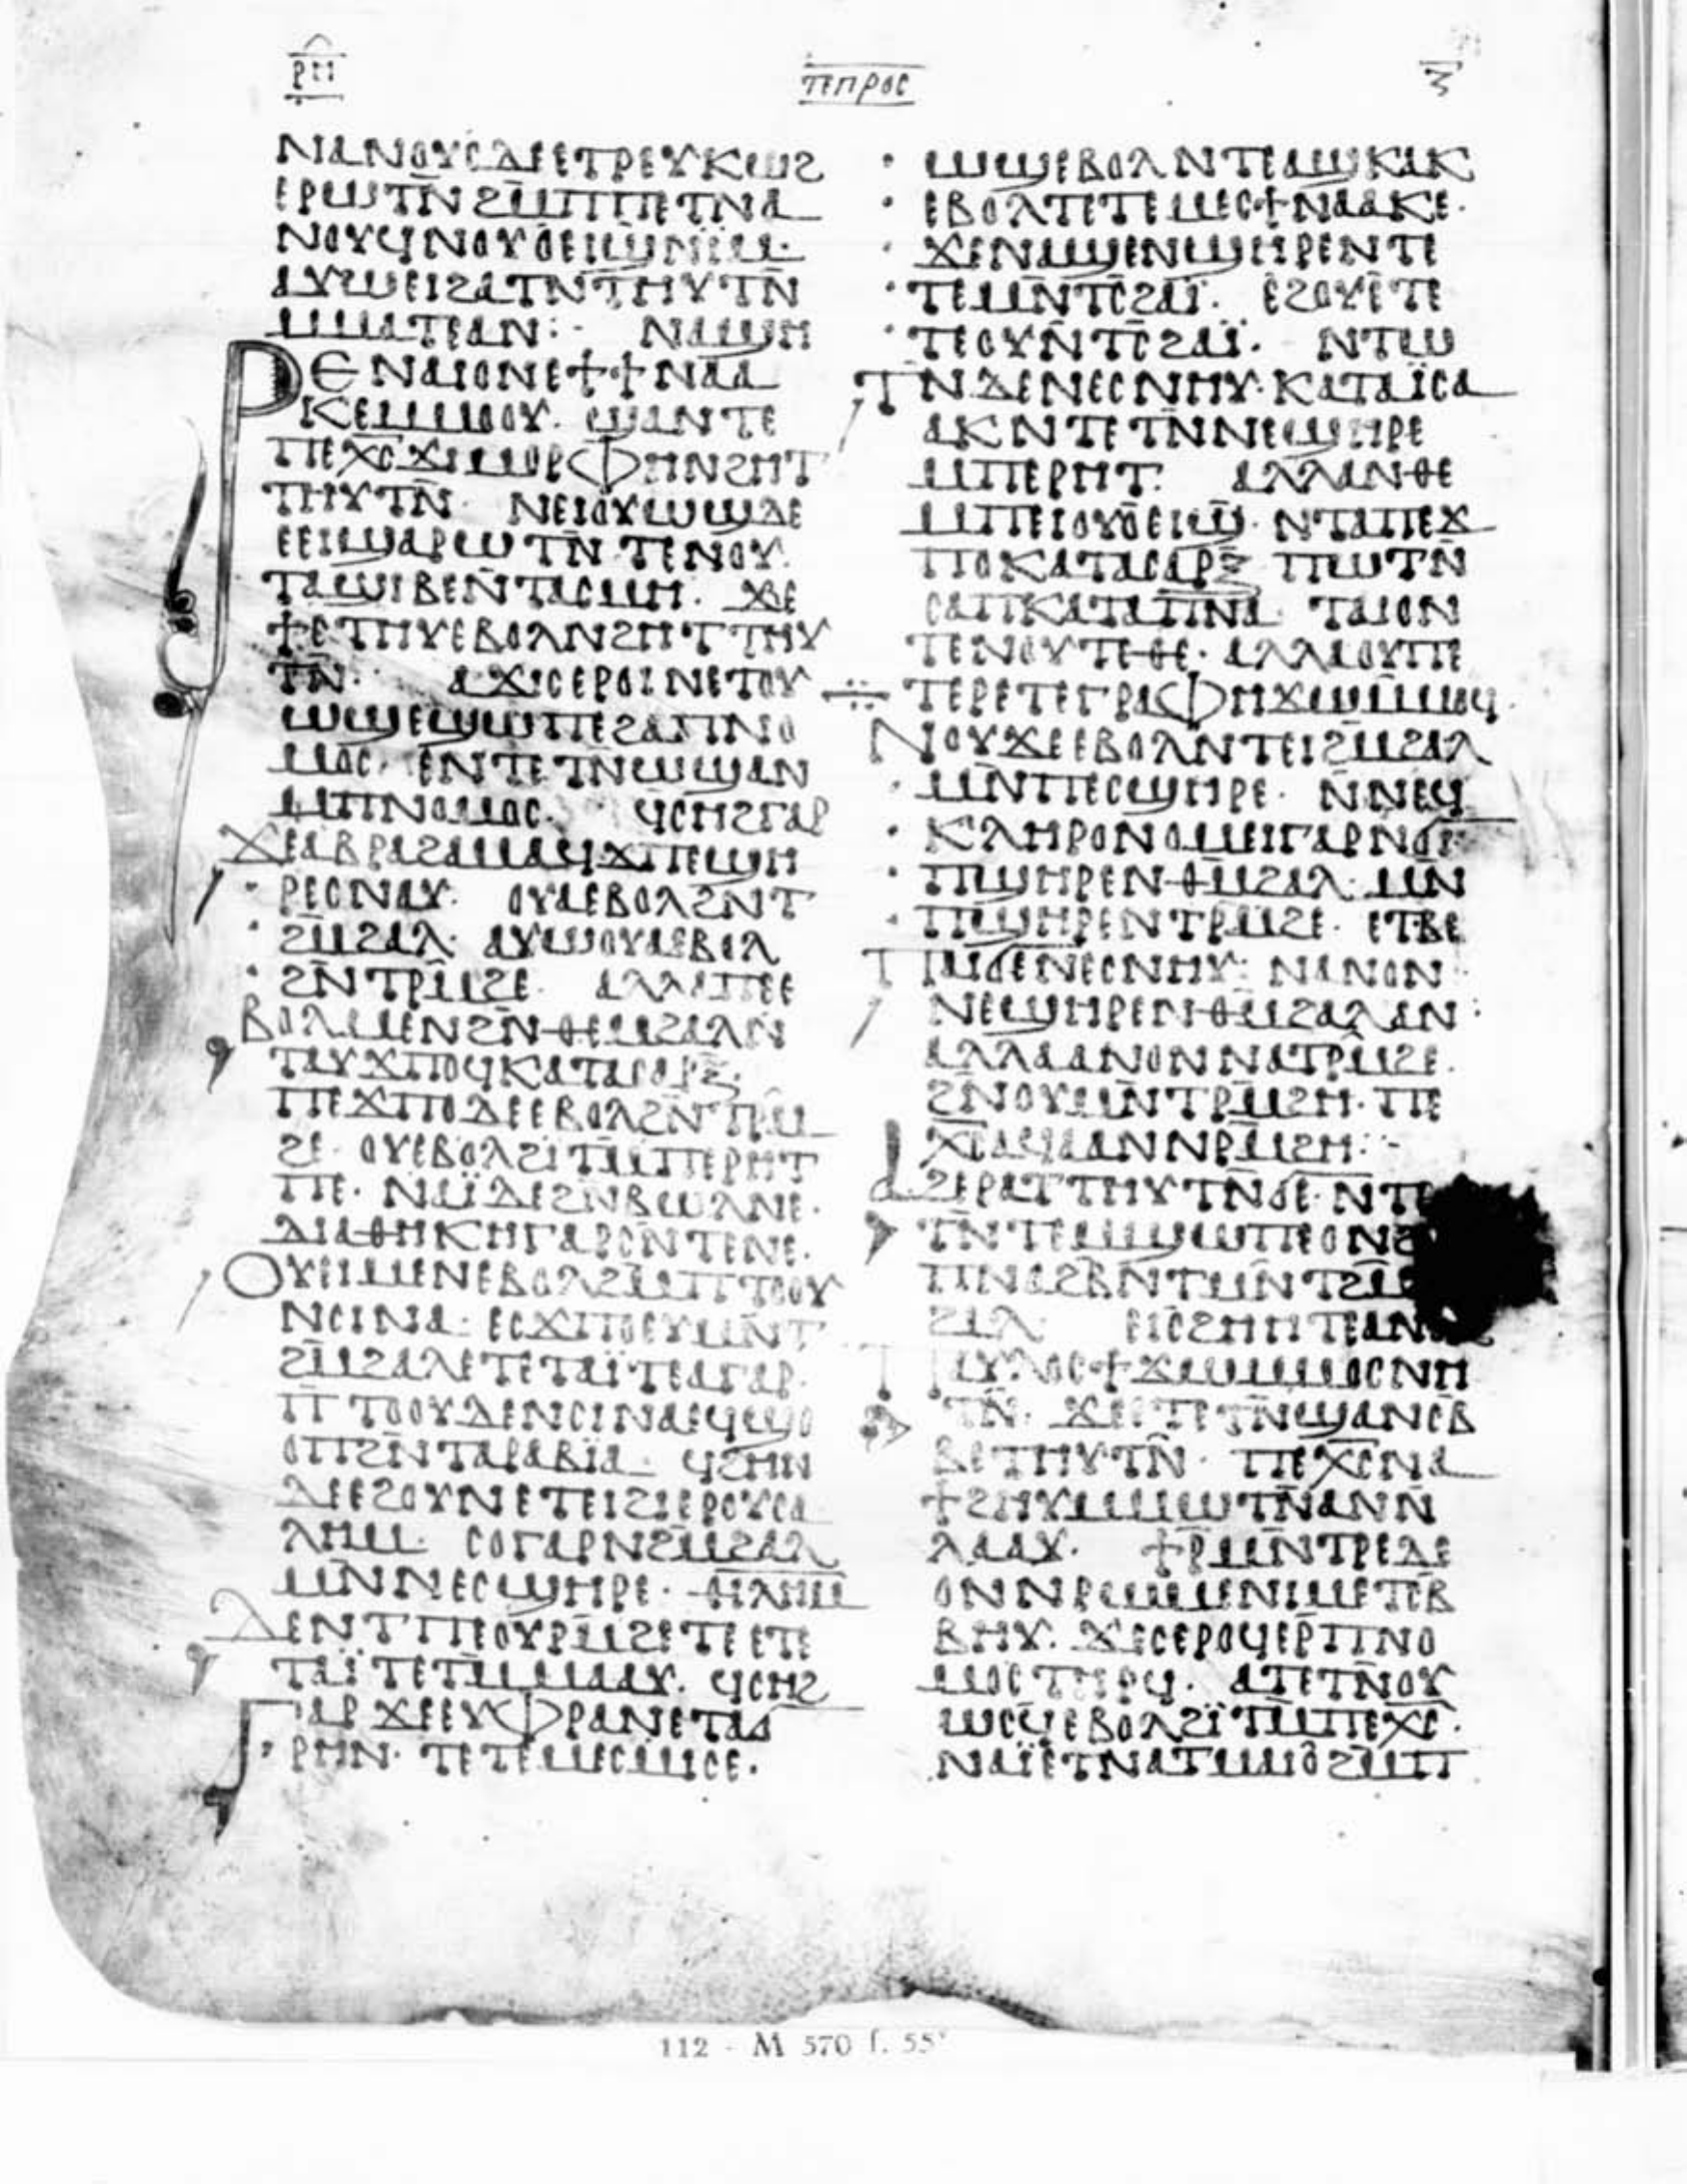 ⲣⲏ
ⲧⲉⲡⲣⲟⲥ
ⲛⲁⲛⲟⲩⲥⲇⲉⲉⲧⲣⲉⲩⲕⲱϩ
ⲉⲣⲱⲧⲛ̄ϩⲙ̄ⲡⲡⲉⲧⲛⲁ
ⲛⲟⲩϥⲛⲟⲩⲟⲉⲓϣⲛⲓⲙ·
ⲁⲩⲱⲉⲓϩⲁⲧⲛ̄ⲧⲏⲩⲧⲛ̄
ⲙⲙⲁⲧⲉⲁⲛ:- ⲛⲁϣⲏ
ⲣⲉⲛⲁⲓⲟⲛⲉϯϯⲛⲁⲁ
ⲕⲉⲙⲙⲟⲟⲩ· ϣⲁⲛⲧⲉ
ⲡⲉⲭ̄ⲥ̄ϫⲓⲙⲟⲣⲫⲏⲛϩⲏⲧ
ⲧⲏⲩⲧⲛ̄· ⲛⲉⲓⲟⲩⲱϣⲇⲉ
ⲉⲉⲓϣⲁⲣⲱⲧⲛ̄ⲧⲉⲛⲟⲩ·
ⲧⲁϣⲓⲃⲉⲛ̄ⲧⲁⲥⲙⲏ· ϫⲉ
ϯⲉⲧⲏⲩⲉⲃⲟⲗⲛϩⲏⲧⲧⲏⲩ
ⲧⲛ̄· ⲁϫⲓⲥⲉⲣⲟⲓⲛⲉⲧⲟⲩ
ⲱϣⲉϣⲱⲡⲉϩⲁⲡⲛⲟ
ⲙⲟⲥ· ⲉⲛⲧⲉⲧⲛ̄ⲱϣⲁⲛ
ⲙⲡⲛⲟⲙⲟⲥ· ϥⲥⲏϩⲅⲁⲣ
ϫⲉⲁⲃⲣⲁϩⲁⲙⲁϥϫⲡⲉϣⲏ
ⲣⲉⲥⲛⲁⲩ· ⲟⲩⲁⲉⲃⲟⲗϩⲛⲧ
ϩⲙ̄ϩⲁⲗ· ⲁⲩⲱⲟⲩⲁⲉⲃⲟⲗ
ϩⲛ̄ⲧⲣⲙ̄ϩⲉ· ⲁⲗⲗⲁⲡⲉⲉ
ⲃⲟⲗⲙⲉⲛϩⲛ̄ⲑⲉⲙϩⲁⲗⲛ̄
ⲧⲁⲩϫⲡⲟϥⲕⲁⲧⲁⲥⲁⲣⲝ·
ⲡⲉϫⲡⲟⲇⲉⲉⲃⲟⲗϩⲛ̄ⲧⲣⲙ
ϩⲉ· ⲟⲩⲉⲃⲟⲗϩⲓⲧⲙ̄ⲡⲉⲣⲏⲧ
ⲡⲉ· ⲛⲁⲓ̈ⲇⲉϩⲛⲃⲱⲗⲛⲉ·
ⲇⲓⲁⲑⲏⲕⲏⲅⲁⲣⲥⲛⲧⲉⲛⲉ·
ⲟⲩⲉⲓⲙⲉⲛⲉⲃⲟⲗϩⲙ̄ⲡⲧⲟⲟⲩ
ⲛⲥⲓⲛⲁ· ⲉⲥϫⲡⲟⲉⲩⲙⲛ̄ⲧ
ϩⲙ̄ϩⲁⲗⲉⲧⲉⲧⲁⲓ̈ⲧⲉⲁⲅⲁⲣ·
ⲡⲧⲟⲟⲩⲇⲉⲛⲥⲓⲛⲁⲉϥϣⲟ
ⲟⲡϩⲛ̄ⲧⲁⲣⲁⲃⲓ̈ⲁ· ϥϩⲏⲛ
ⲇⲉⲉϩⲟⲩⲛⲉⲧⲉⲓϩⲓⲉⲣⲟⲩⲥⲁ
ⲗⲏⲙ· ⲥⲟⲅⲁⲣⲛϩⲙ̄ϩⲁⲗ
ⲙⲛ̄ⲛⲉⲥϣⲏⲣⲉ· ⲑⲓⲗⲏⲙ
ⲇⲉⲛⲧⲡⲉⲟⲩⲣⲙ̄ϩⲉⲧⲉⲉⲧⲉ
ⲧⲁⲓ̈ⲧⲉⲧⲙ̄ⲙⲁⲁⲩ· ϥⲥⲏϩ
ⲅⲁⲣϫⲉⲉⲩⲫⲣⲁⲛⲉⲧⲁϭ
ⲣⲏⲛ· ⲧⲉⲧⲉⲙⲉⲥⲙⲓⲥⲉ·
ⲱϣⲉⲃⲟⲗⲛⲧⲉⲁϣⲕⲁⲕ
ⲉⲃⲟⲗⲧⲉⲧⲉⲙⲉⲥϯⲛⲁⲁⲕⲉ·
ϫⲉⲛⲁϣⲉⲛϣⲏⲣⲉⲛⲧⲉ
ⲧⲉⲙⲛ̄ⲧⲥ̄ϩⲁⲓ̈· ⲉϩⲟⲩⲉⲧⲉ
ⲧⲉⲟⲩⲛ̄ⲧⲥ̄ϩⲁⲓ̈· ⲛⲧⲱ
ⲧⲛⲇⲉⲛⲉⲥⲛⲏⲩ·ⲕⲁⲧⲁⲓ̈ⲥⲁ
ⲁⲕⲛⲧⲉⲧⲛ̄ⲛⲉϣⲏⲣⲉ
ⲙⲡⲉⲣⲏⲧ· ⲁⲗⲗⲁⲛⲑⲉ
ⲙⲡⲉⲓⲟⲩⲟⲉⲓϣ· ⲛⲧⲁⲡⲉϫ
ⲡⲟⲕⲁⲧⲁⲥⲁⲣⲝ ⲡⲱⲧⲛ̄
ⲥⲁⲡⲕⲁⲧⲁⲡ̄ⲛ̄ⲁ̄· ⲧⲁⲓⲟⲛ
ⲧⲉⲛⲟⲩⲧⲉⲑⲉ· ⲁⲗⲗⲁⲟⲩⲡⲉ
ⲧⲉⲣⲉⲧⲉⲅⲣⲁⲫⲏϫⲱⲙ̄ⲙⲟϥ·
ⲛⲟⲩϫⲉⲉⲃⲟⲗⲛⲧⲉⲓϩⲙϩⲁⲗ
ⲙⲛ̄ⲡⲉⲥϣⲏⲣⲉ· ⲛ̄ⲛⲉϥ
ⲕⲗⲏⲣⲟⲛⲟⲙⲉⲓⲅⲁⲣⲛϭⲓ
ⲡϣⲏⲣⲉⲛⲑⲙ̄ϩⲁⲗ· ⲙⲛ
ⲡϣⲏⲣⲉⲛⲧⲣⲙ̄ϩⲉ· ⲉⲧⲃⲉ
ⲡⲁⲓϭⲉⲛⲉⲥⲛⲏⲩ: ⲛⲁⲛⲟⲛ
ⲛⲉϣⲏⲣⲉⲛⲑⲙ̄ϩⲁⲗⲁⲛ:
ⲁⲗⲗⲁⲁⲛⲟⲛⲛⲁⲧⲣⲙ̄ϩⲉ·
ϩⲛⲟⲩⲙⲛ̄ⲧⲣⲙ̄ϩⲏ· ⲡⲉ
ⲭ̄ⲥ̄ⲁϥⲁⲁⲛⲛⲣⲙ̄ϩⲏ:-
ⲁϩⲉⲣⲁⲧⲧⲏⲩⲧⲛϭⲉ·ⲛⲧⲉ
ⲧⲛ̄ⲧⲉⲙϣⲱⲡⲉⲟⲛϩ
ⲡⲛⲁϩⲃⲛⲧⲙⲛ̄ⲧϩⲙ̄
ϩⲁⲗ· ⲉⲓⲥϩⲏⲏⲧⲉⲁⲛⲟⲕ
ⲡⲁⲩⲗⲟⲥϯϫⲱⲙⲙⲟⲥⲛⲏ
ⲧⲛ̄· ϫⲉⲉⲧⲉⲧⲛ̄ϣⲁⲛⲥⲃ
ⲃⲉⲧⲏⲩⲧⲛ̄· ⲡⲉⲭ̄ⲥ̄ⲛⲁ
ϯϩⲏⲩⲙⲙⲱⲧⲛ̄ⲁⲛⲛ̄
ⲗⲁⲁⲩ· ϯⲣⲙⲛ̄ⲧⲣⲉⲇⲉ
ⲟⲛⲛⲣⲱⲙⲉⲛⲓⲙⲉⲧⲥⲃ
ⲃⲏⲩ· ϫⲉⲥⲉⲣⲟϥⲉⲣⲡⲛⲟ
ⲙⲟⲥⲧⲏⲣϥ· ⲁⲧⲉⲧⲛ̄ⲟⲩ
ⲱⲥϥⲉⲃⲟⲗϩⲓ̈ⲧⲙ̄ⲡⲉⲭ̄ⲥ̄·
ⲛⲁⲓ̈ⲉⲧⲛⲁⲧⲙⲁⲓⲟϩⲙⲡ
112 - M 570 f. 55ᵛ